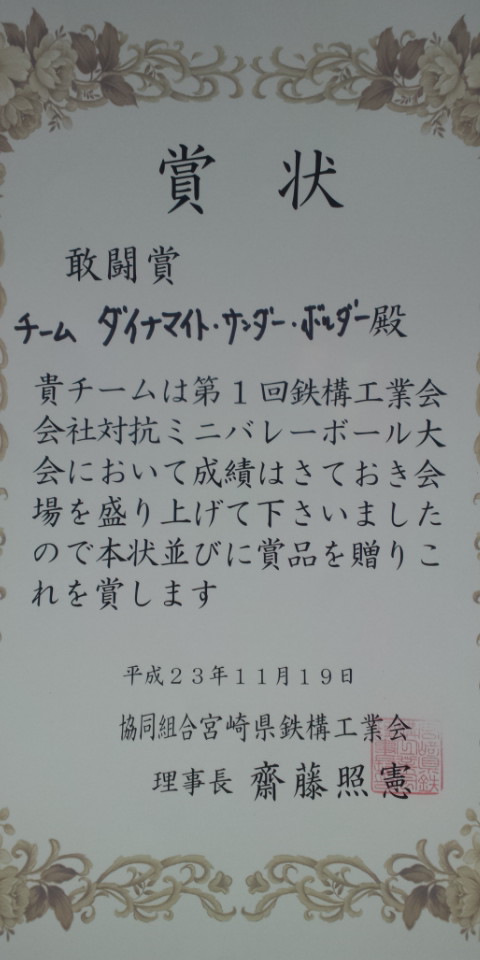 賞状
敢闘賞
チーム ダイナマイト・サンダー・ボルダー殿
貴チームは第１回鉄構工業会
会社対抗ミニバレーボール大
会において成績はさておき会
場を盛り上げて下さいました
ので本状並びに賞品を贈りこ
れを賞します
平成２３年１１月１９日
協同組合宮崎県鉄構工業会
理事長 齋藤照憲